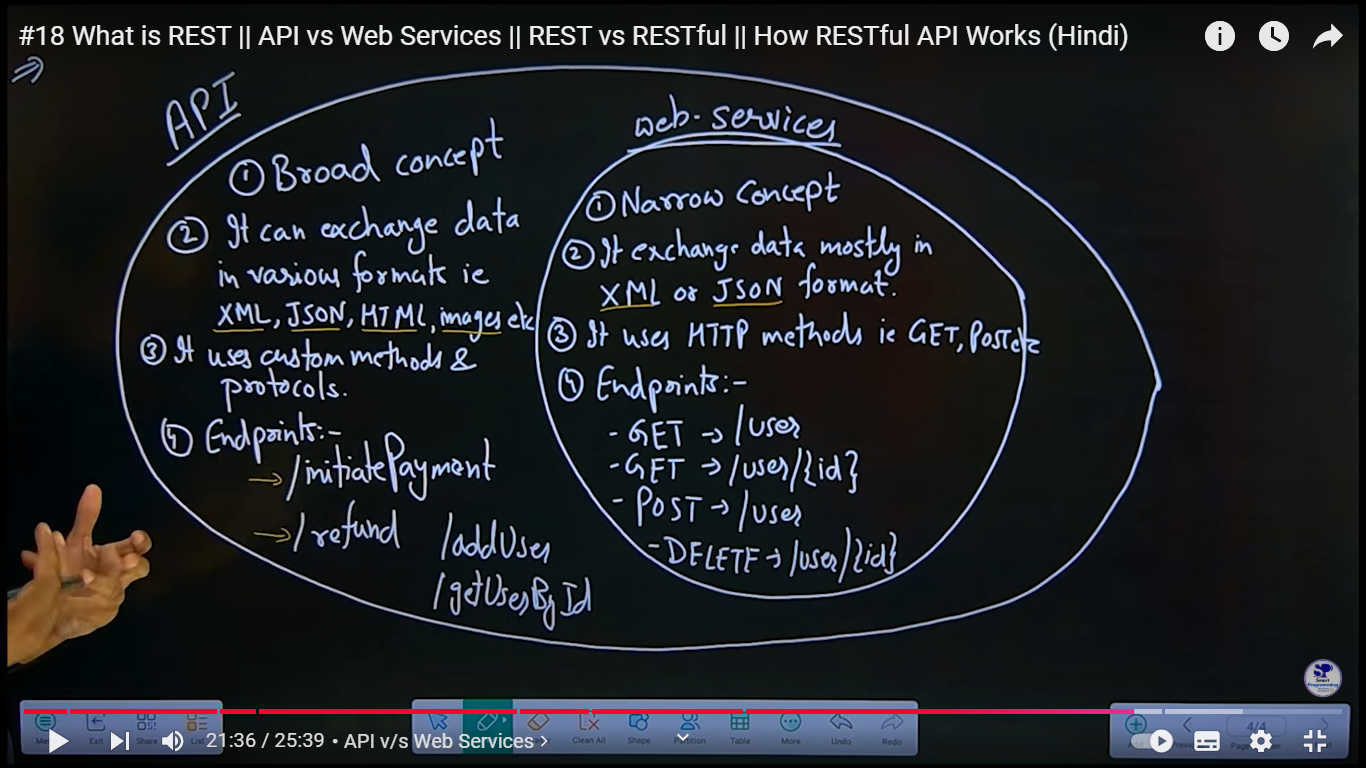 #18 What is REST || API vs Web Services || REST vs RESTful || How RESTful API Works (Hindi)
API
① Broad concept
② It can exchange data
in various formats ie
XML, JSON, HTML, images etc
③ It uses custom methods &
protocols.
④ Endpoints:-
→ /initiatePayment
→ /refund
/addUser
/getUserById
web-services
① Narrow Concept
② It exchange data mostly in
XML or JSON format.
③ It uses HTTP methods ie GET, POST etc
④ Endpoints:-
- GET → /user
- GET → /user/{id}
- POST → /user
- DELETE → /user/{id}
Smart
Programming
Exit
Share
Clean All
Shape
Table
More
Undo
Redo
4/4
21:36 / 25:39 • API v/s Web Services ›